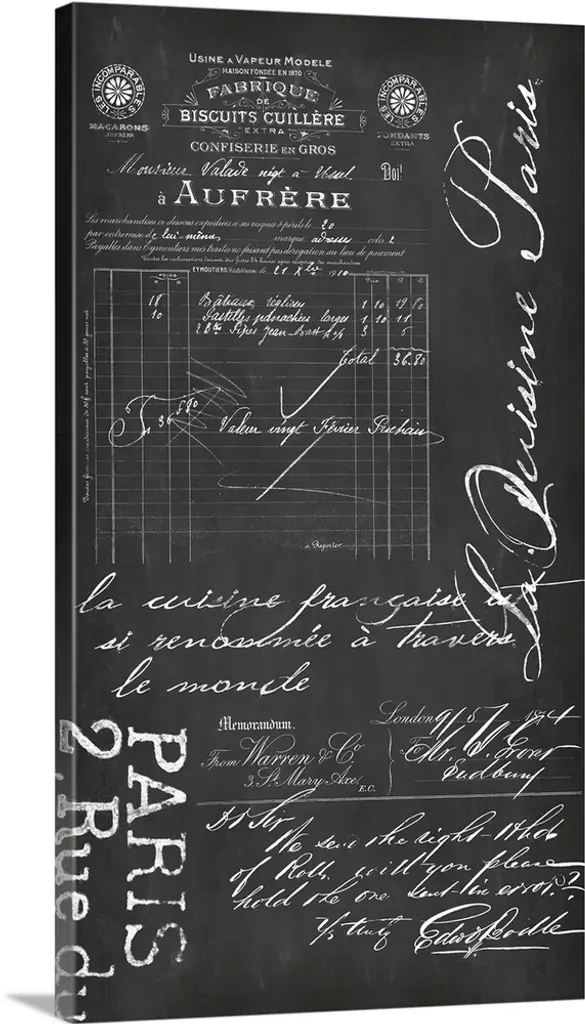 Usine à Vapeur Modele
MAISON FONDÉE EN 1870
FABRIQUE
DE
BISCUITS CUILLÈRE
EXTRA
CONFISERIE EN GROS
LES INCOMPARABLES
MACARONS
AUFRÈRE
LES INCOMPARABLES
FONDANTS
EXTRA
Monsieur Valade à Doit
à AUFRÈRE
Les marchandises ci-dessous expédiées à ses risques & périls le 20
par entremise de lui-même marque adresse colis 2
Payables dans Eymoutiers mes traites ne faisant pas dérogation au lieu de paiement
EYMOUTIERS (Haute-Vienne), le 21 Xbre 1910
18 Bâteaux 1 10 19 80
10 Pastilles panachées larges 1 10 11
2 Btes Pipes Jean-Bart 3 6
Total 36.80
36.80
Valeur vingt Février Prochain
à Reporter
La Cuisine Paris
la cuisine française
si renommée à travers
le monde
PARIS
2, Rue du
Memorandum.
From Warren & Co.
3, St. Mary Axe,
E.C.
London 9/5/ 1874
To Mr.
Sudbury
Dr Sir
We send the right
of Roth, will you please
hold the one sent in error.
Yrs truly